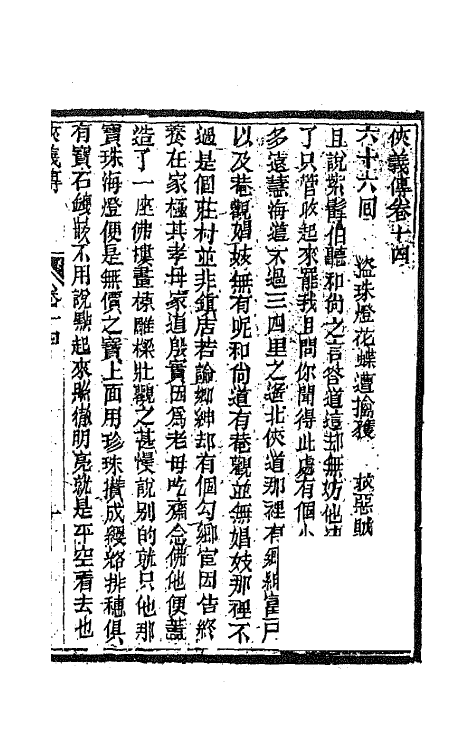 俠義傳卷十四
六十六回　盜珠燈花蝶遭擒獲　救惡賊
且說紫髯伯聽和尚之言答道這却無妨他
了只管收起來罷我且問你聞得此處有個小
多遠慧海道不過三四里之遙北俠道那裡有鄉紳富戶
以及菴觀娼妓無有呢和尚道有菴觀並無娼妓那裡不
過是個莊村並非鎮店若論鄉紳却有個勾鄉宦因告終
養在家極其孝母家道殷實因為老母吃齋念佛他便蓋
造了一座佛樓畫棟雕樑壯觀之甚慢說別的就只他那
寶珠海燈便是無價之寶上面用珍珠攢成纓絡排穗俱
有寶石鑲嵌不用說點起來照徹明亮就是平空看去也
俠義傳　卷十四